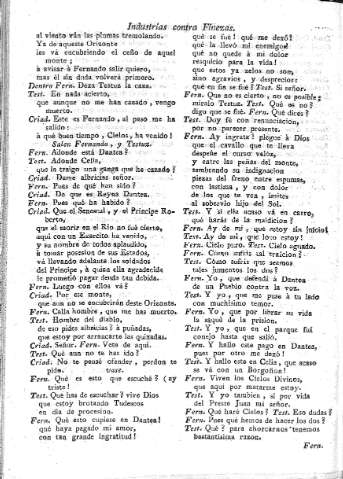 Industrias contra Finezas.
al viento van las plumas tremolando.
Ya de aqueste Orizonte
les vá encubriendo el ceño de aquel
monte;
á avisar á Fernando salir quiero,
mas él sin duda volverá primero.
Dentro Fern. Dexa Testuz la caza.
Test. En nada acierto,
que aunque no me han cazado, vengo
muerto.
Criad. Este es Fernando, al paso me ha
salido:
á qué buen tiempo, Cielos, ha venido!
Salen Fernando, y Testuz.
Fern. Adonde está Dantea?
Test. Adonde Celia,
que lo traigo una ganga que ha cazado?
Criad. Dame albricias señor.
Fern. Pues de qué han sido?
Criad. De que es Reyna Dantea.
Fern. Pues qué ha habido?
Criad. Que el Senescal, y el Príncipe Ro-
berto,
que el morir en el Rio no fué cierto,
aquí con un Exército ha venido,
y su nombre de todos aplaudido,
á tomar posesion de sus Estados,
vá llevando adelante los soldados
del Príncipe, á quien ella agradecida
le prometió pagar deuda tan debida.
Fern. Luego con ellos vá?
Criad. Por ese monte,
que aun no se encubrirán deste Orizonte.
Fern. Calla hombre, que me has muerto.
Test. Hombre del diablo,
de eso pides albricias? á puñadas,
que estoy por arrancarte las quixadas.
Criad. Señor. Fern. Vete de aquí.
Test. Qué aun no te has ido?
Criad. No te pause ofender, perdon te
pido. vase.
Fern. Qué es esto que escuché? (ay
triste!
Test. Qué has de escuchar? vive Dios
que estoy brotando Tudescos
en dia de procesion.
Fern. Qué esto cupiese en Dantea!
qué haya pagado mi amor,
con tan grande ingratitud!
qué se fué! qué me dexó!
qué la llevó mi enemigo!
qué no quede á mi dolor
resquicio para la vida!
que estos ya zelos no son,
sino agravios, y desprecios:
qué en fin se fué? Test. Si señor.
Fern. Que no es cierto, no es posible;
míralo Testuz. Test. Qué es no?
digo que se fué. Fern. Qué dices?
Test. Doy fé con renunciacion,
por no parecer presente.
Fern. Ay ingrata! plegue á Dios
que el caballo que te lleva
despeñe el curso veloz,
y entre las peñas del monte,
sembrando su indignacion
piezas del freno entre espumas,
con lastima, y con dolor
de los que te vea, imites
al soberbio hijo del Sol.
Test. Y si ella acaso vá en carro,
qué harás de la maldicion?
Fern. Ay de mí, que estoy sin juicio!
Test. Ay de mí, que loco estoy!
Fern. Cielo puro. Test. Cielo aguado.
Fern. Cómo sufrís tal traicion?
Test. Cómo sufrís que seamos
tales jumentos los dos?
Fern. Yo, que defendí á Dantea
de un Pueblo contra la voz.
Test. Y yo, que me puse á tu lado
con muchísimo temor.
Fern. Yo, que por librar su vida
la saqué de la prision.
Test. Y yo, que en el parque fui
conejo hasta que salió.
Fern. Y hallo este pago en Dantea,
pues por otro me dexó!
Test. Y hallo esta en Celia, que acaso
se vá con un Borgoñon!
Fern. Viven los Cielos Divinos,
que aquí por matarme estoy.
Test. Y yo tambien, si por vida
del Preste Juan mi señor.
Fern. Qué haré Cielos? Test. Eso dudas?
Fern. Pues qué hemos de hacer los dos?
Test. Qué? para ahorcarnos tenemos
bastantísima razon.
Fern.